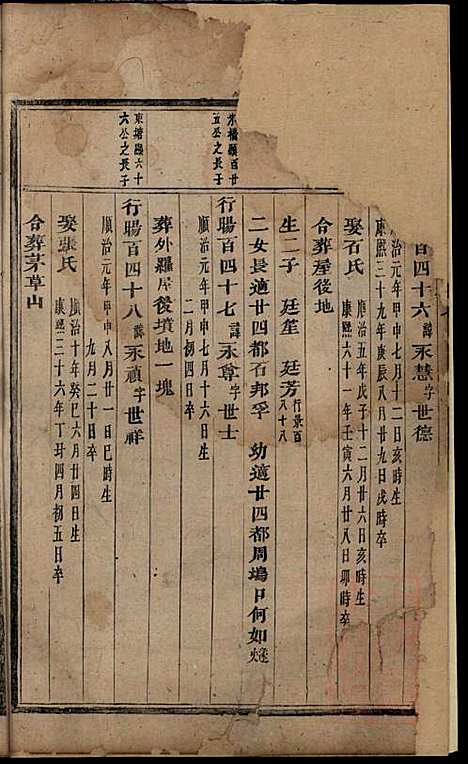 百四十六諱永慧字世德
治元年甲申七月十二日亥時生
康熙三十九年庚辰八月廿九日戌時卒
娶石氏
順治五年戊子十二月廿六日亥時生
康熙六十一年壬寅六月廿八日卯時卒
合葬屋後地
生二子 廷笙 廷芳行景百八十八
二女長適廿四都石邦孚 幼適廿四都周塢口何如
米橋顯百廿五公之長子
行暘百四十七諱永尊字世士
順治元年甲申七月十六日卯時生
二月初四日卒
葬外羅屋後墳地一塊
東塘顯六十六公之長子
行暘百四十八諱永禎字世祥
順治元年甲申八月廿一日巳時生
九月二十日卒
娶張氏
順治十年癸巳六月廿四日生
康熙三十六年丁丑四月初五日卒
合葬茅草山